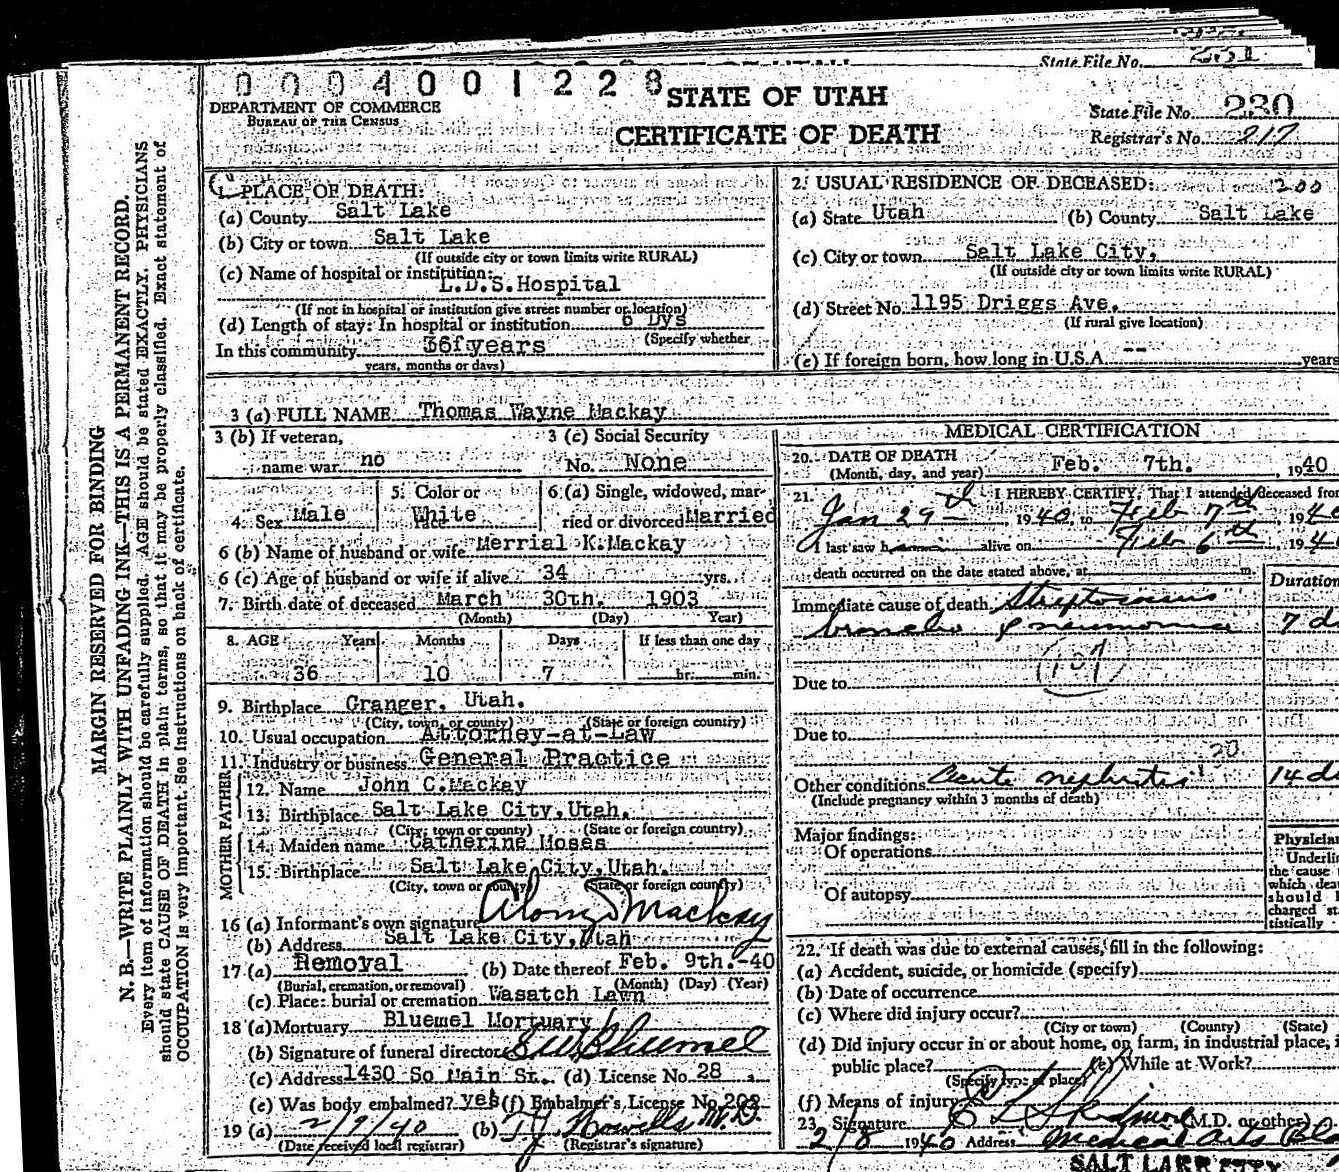 State File No. 231
0 0 0 4 0 0 1 2 2 8
STATE OF UTAH
CERTIFICATE OF DEATH
DEPARTMENT OF COMMERCE
BUREAU OF THE CENSUS
State File No. 230
Registrar's No. 217
MARGIN RESERVED FOR BINDING
N. B.—WRITE PLAINLY WITH UNFADING INK—THIS IS A PERMANENT RECORD.
Every item of information should be carefully supplied. AGE should be stated EXACTLY. PHYSICIANS
should state CAUSE OF DEATH in plain terms, so that it may be properly classified. Exact statement of
OCCUPATION is very important. See instructions on back of certificate.
1. PLACE OF DEATH:
(a) County Salt Lake
(b) City or town Salt Lake
(If outside city or town limits write RURAL)
(c) Name of hospital or institution:
L.D.S.Hospital
(If not in hospital or institution give street number or location)
(d) Length of stay: In hospital or institution 6 Dys
(Specify whether
In this community 36 years
years, months or days)
2. USUAL RESIDENCE OF DECEASED: 200
(a) State Utah (b) County Salt Lake
(c) City or town Salt Lake City,
(If outside city or town limits write RURAL)
(d) Street No. 1195 Driggs Ave.
(If rural give location)
(e) If foreign born, how long in U.S.A. -- years
3 (a) FULL NAME Thomas Wayne Mackay
3 (b) If veteran, name war no
3 (c) Social Security No. None
4. Sex Male
5. Color or White
6 (a) Single, widowed, married or divorced Married
6 (b) Name of husband or wife Merrial K.Mackay
6 (c) Age of husband or wife if alive 34 yrs.
7. Birth date of deceased March 30th. 1903
(Month) (Day) Year)
8. AGE Years Months Days If less than one day
36 10 7 hr. min.
9. Birthplace Granger, Utah.
(City, town, or county) (State or foreign country)
10. Usual occupation Attorney-at-Law
11. Industry or business General Practice
FATHER
12. Name John C.Mackay
13. Birthplace Salt Lake City,Utah.
(City, town or county) (State or foreign country)
MOTHER
14. Maiden name Catherine Moses
15. Birthplace Salt Lake City,Utah.
(City, town or county) (State or foreign country)
16 (a) Informant's own signature Alonzo Mackay
(b) Address Salt Lake City,Utah
17 (a) Removal (b) Date thereof Feb. 9th.-40
(Burial, cremation, or removal) (Month) (Day) (Year)
(c) Place: burial or cremation Wasatch Lawn
18 (a) Mortuary Bluemel Mortuary
(b) Signature of funeral director E W Bluemel
(c) Address 1430 So Main St. (d) License No. 28
(e) Was body embalmed? yes (f) Embalmer's License No. 208
19 (a) 2/9/40 (b) T J Howells M.D
(Date received local registrar) (Registrar's signature)
MEDICAL CERTIFICATION
20. DATE OF DEATH
(Month, day, and year) Feb. 7th. , 1940
21. I HEREBY CERTIFY, That I attended deceased from
Jan 29th 1940, to Feb 7th, 194
I last saw h alive on Feb 6th, 194
death occurred on the date stated above, at m.
Duration
Immediate cause of death Streptococcus
broncho pneumonia 7 d
107
Due to
Due to
30
Other conditions acute nephritis 14 d
(Include pregnancy within 3 months of death)
Major findings:
Of operations
Of autopsy
Physician
Underli
the cause
which dea
should
charged st
tistically
22. If death was due to external causes, fill in the following:
(a) Accident, suicide, or homicide (specify)
(b) Date of occurrence
(c) Where did injury occur?
(City or town) (County) (State)
(d) Did injury occur in or about home, on farm, in industrial place, i
public place? (e) While at Work?
(Specify type of place)
(f) Means of injury
23. Signature Skidmore (M.D. or other)
2/8 1940 Address Medical Arts Bl
SALT LAKE CITY